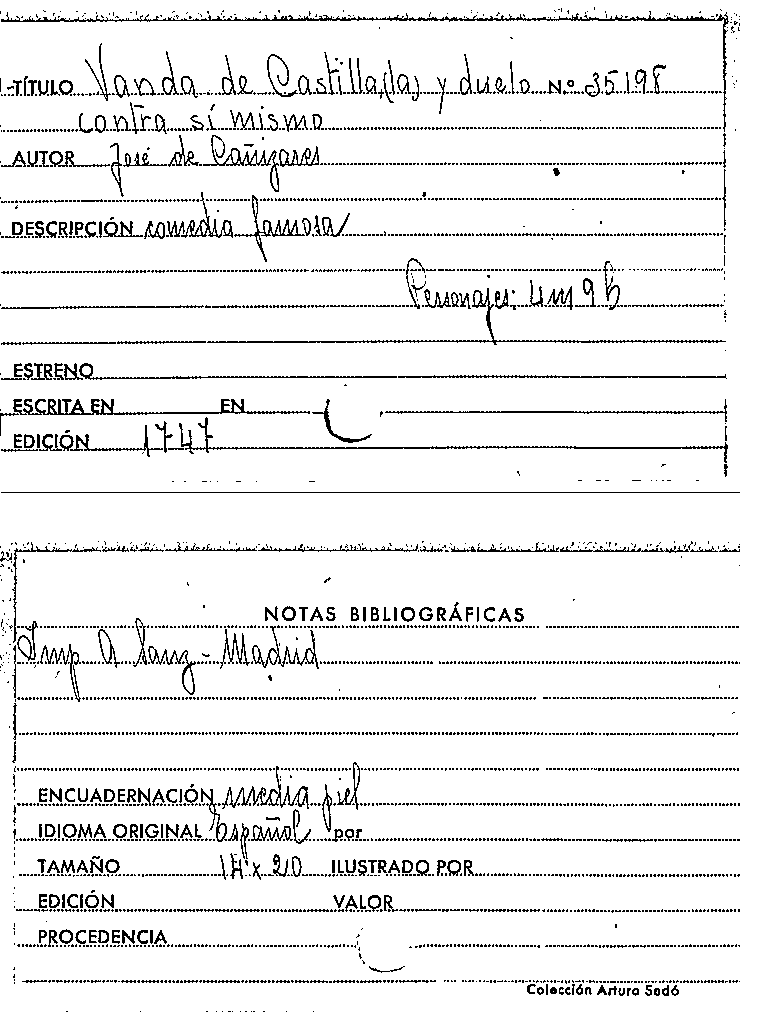 -TÍTULO Vanda de Castilla,(la) y duelo N.º 35198
contra sí mismo
AUTOR José de Cañizares
DESCRIPCIÓN comedia famosa
Personajes: 4m 9h
ESTRENO
ESCRITA EN EN
EDICIÓN 1747
NOTAS BIBLIOGRÁFICAS
Imp A Sanz - Madrid
ENCUADERNACIÓN media piel
IDIOMA ORIGINAL Español por
TAMAÑO x 20 ILUSTRADO POR
EDICIÓN VALOR
PROCEDENCIA
Colección Arturo Sedó